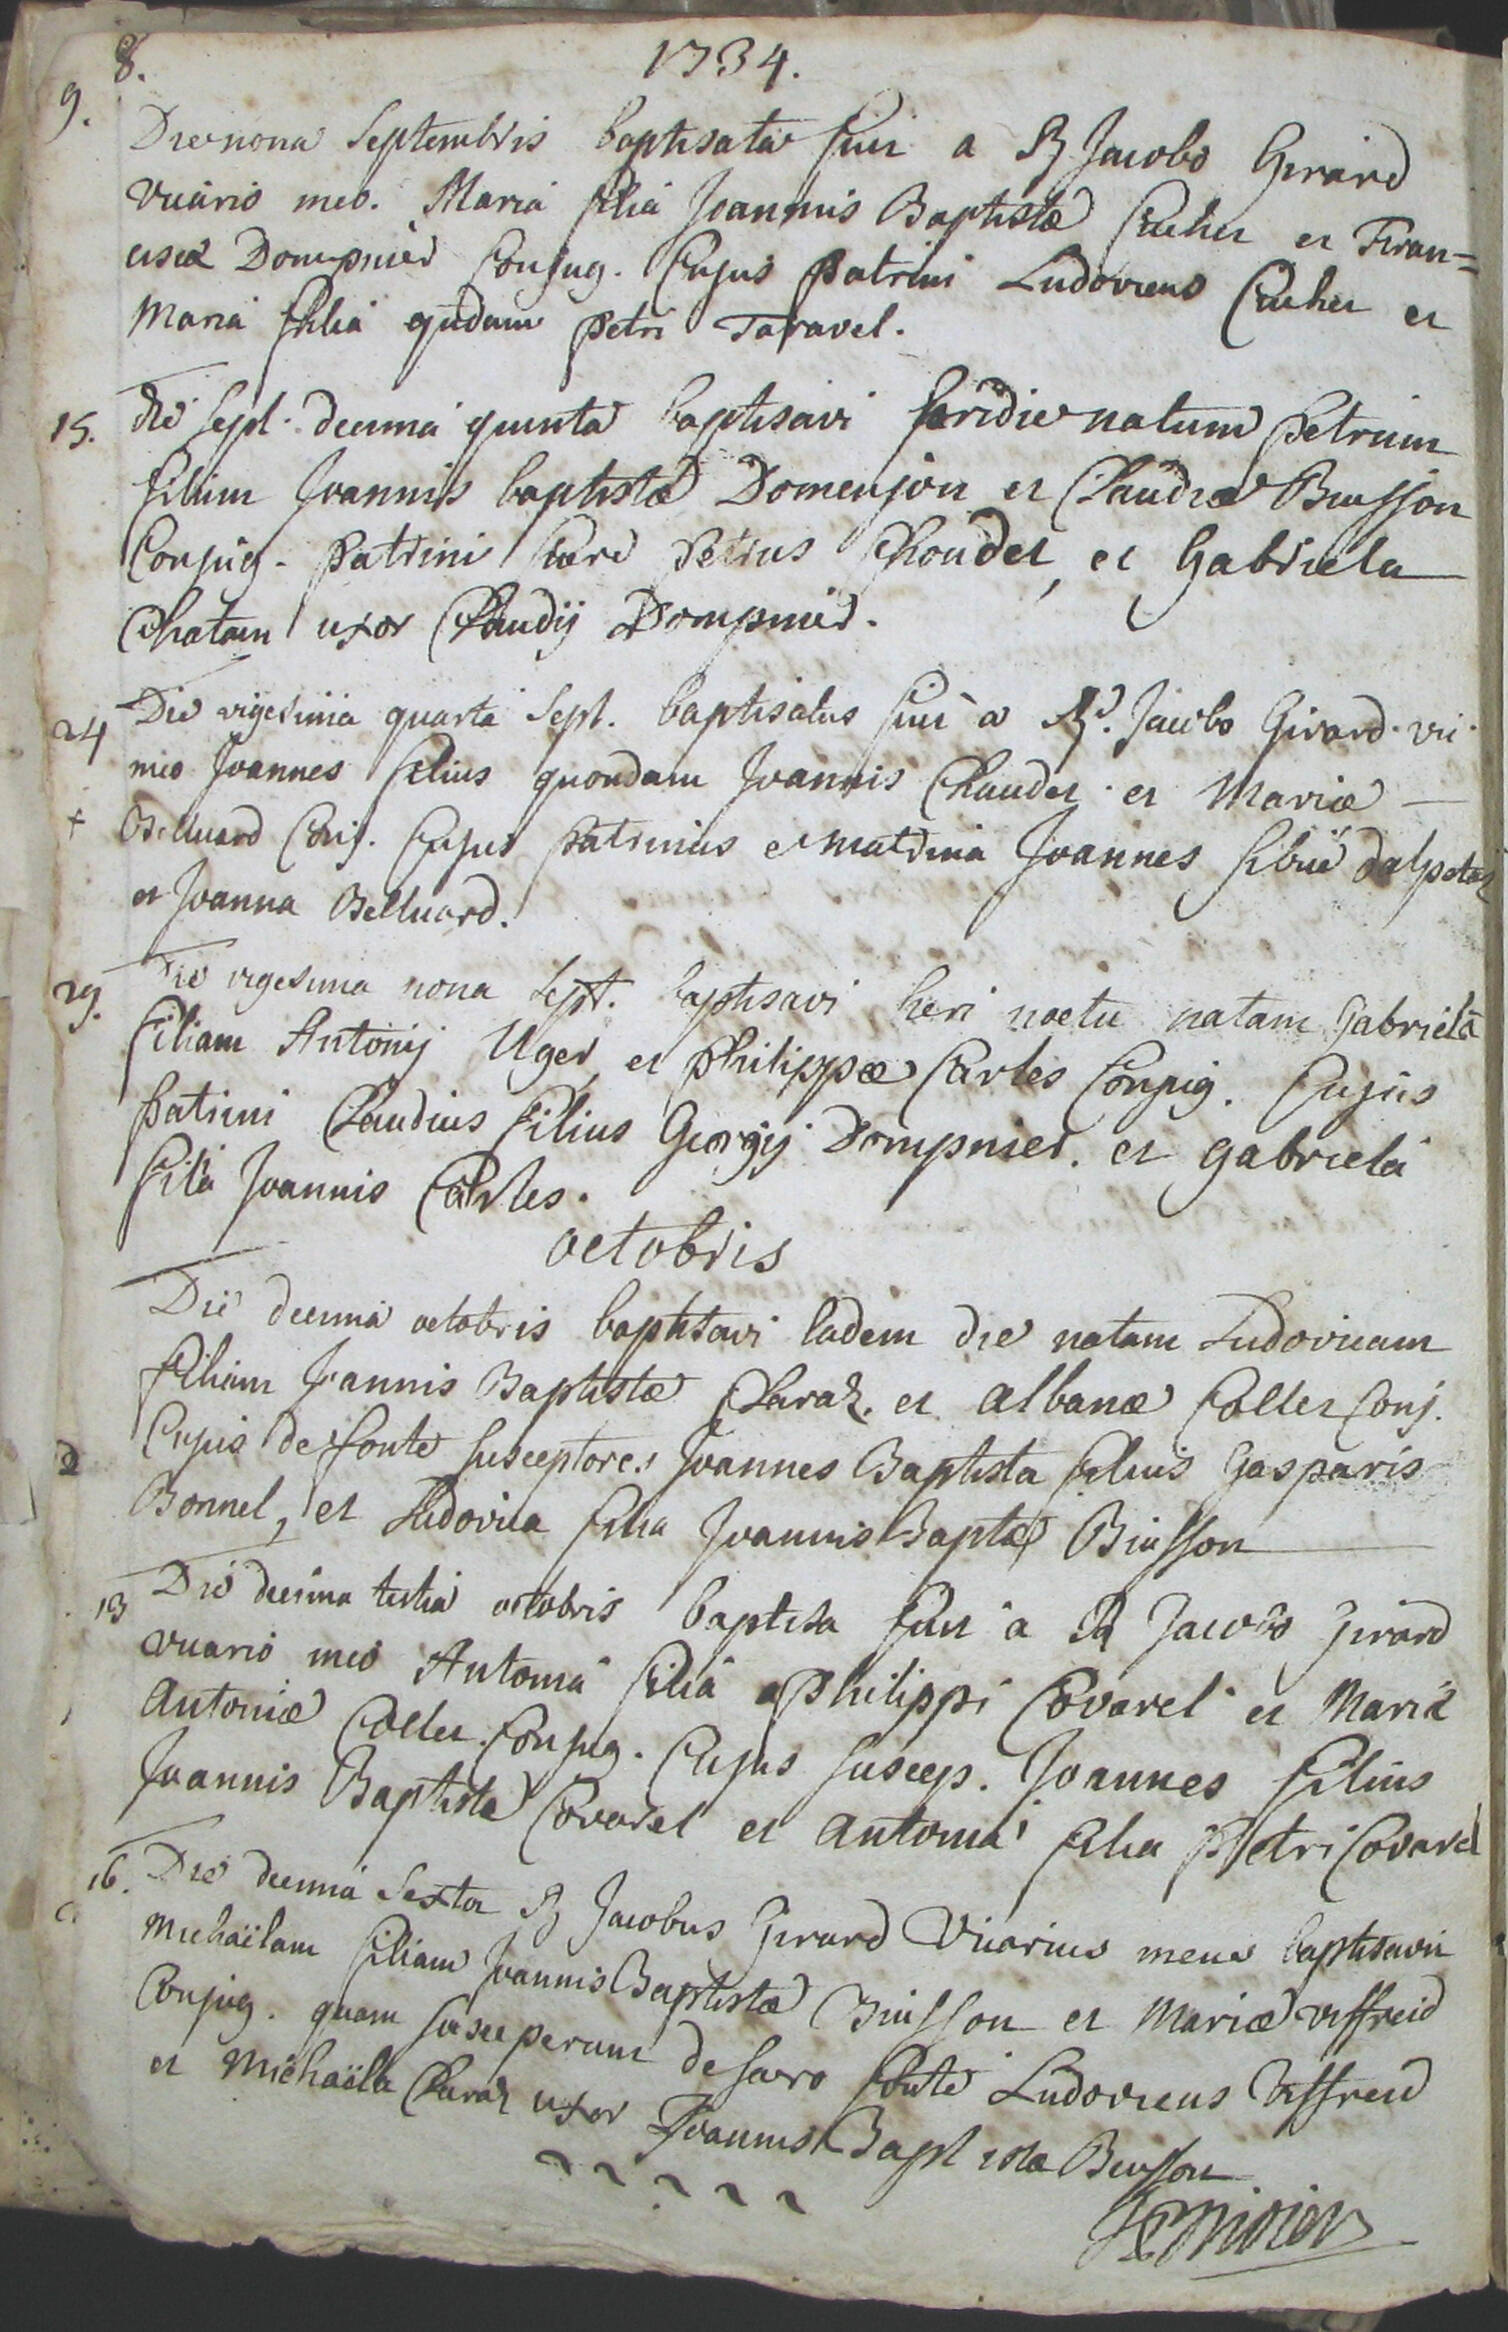 8. 1734.
9. Die nona Septembris baptisata fuit a R Jacobo Girard
vicario meo. Maria filia Joannis Baptistæ Cucher et Fran=
ciscæ Dompnier Conjug. Cujus Patrini Ludovicus Cucher et
Maria filia qudam Petri Taravel.
15. die sept. decima quinta baptisavi pridie natum Petrum
filium Joannis baptistæ Domenjon et Claudiæ Buisson
Conjug. Patrini fuere Petrus Choudet, et Gabriela
Chatain uxor Claudij Dompnier.
24 Die vigesima quarta Sept. baptisatus fuit a Rd. Jacobo Girard vic.
meo Joannes filius quondam Joannis Claudet et Mariæ
+ Belluard Conj. Cujus Patrinus et matrina Joannes sibuë dalpetaz
et Joanna Belluard.
29. Die vigesima nona Sept. baptisavi heri noctu natam Gabrielā
filiam Antonij Uger et Philippæ Carles Conjug. Cujus
Patrini Claudius filius Georgij Dompnier. et gabriela
filia Joannis Carles.
octobris
Die decima octobris baptisavi Eadem die natam Ludovicam
filiam Joannis Baptistæ Claraz. et albanæ Collet Conj.
Cujus de fonte susceptores Joannes Baptista filius Gasparis
Bonnel, et Ludovica filia Joannis Baptæ Buisson
13 Die decima tertia octobris baptisa fuit a R Jacobo Girard
vicario meo Antonia filia Philippi Covarel et Mariæ
Antoniæ Collet. Conjug. Cujus suscep. Joannes filius
Joannis Baptistæ Covarel et antonia filia Petri Covarel
16. Die decima Sexta R Jacobus Girard Vicarius meus baptisavit
Michaëlam filiam Joannis Baptistæ Buisson et Mariæ Uffreid
Conjug. quam susceperunt de sacro fonte Ludovicus Uffreid
et Michaëla Claraz uxor Joannis Baptistæ Buisson